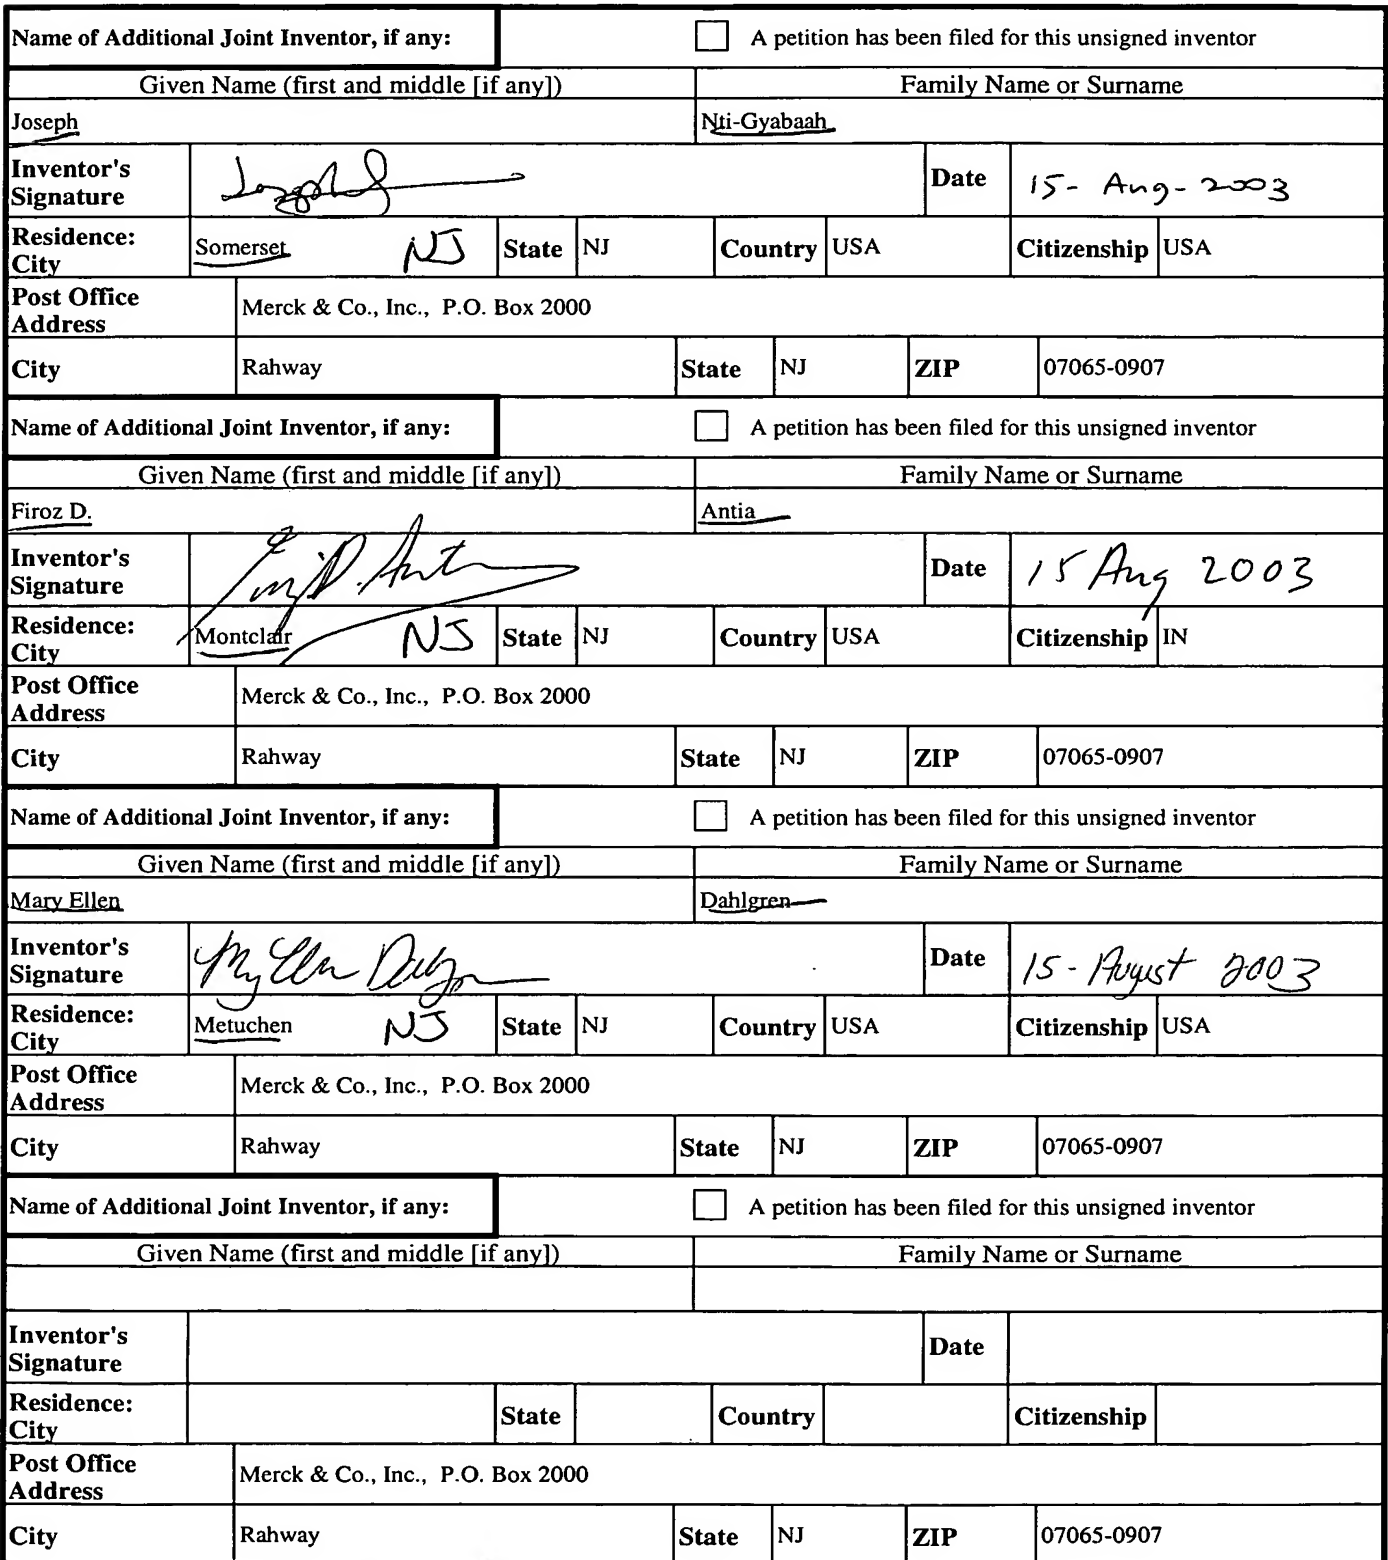 Name of Additional Joint Inventor, if any: A petition has been filed for this unsigned inventor
Given Name (first and middle [if any]) Family Name or Surname
Joseph Nti-Gyabaah
Inventor's Signature Date 15-Aug-2003
Residence: City Somerset NJ State NJ Country USA Citizenship USA
Post Office Address Merck & Co., Inc., P.O. Box 2000
City Rahway State NJ ZIP 07065-0907
Name of Additional Joint Inventor, if any: A petition has been filed for this unsigned inventor
Given Name (first and middle [if any]) Family Name or Surname
Firoz D. Antia
Inventor's Signature Date 15 Aug 2003
Residence: City Montclair NJ State NJ Country USA Citizenship IN
Post Office Address Merck & Co., Inc., P.O. Box 2000
City Rahway State NJ ZIP 07065-0907
Name of Additional Joint Inventor, if any: A petition has been filed for this unsigned inventor
Given Name (first and middle [if any]) Family Name or Surname
Mary Ellen Dahlgren
Inventor's Signature Date 15-August 2003
Residence: City Metuchen NJ State NJ Country USA Citizenship USA
Post Office Address Merck & Co., Inc., P.O. Box 2000
City Rahway State NJ ZIP 07065-0907
Name of Additional Joint Inventor, if any: A petition has been filed for this unsigned inventor
Given Name (first and middle [if any]) Family Name or Surname
Inventor's Signature Date
Residence: City State Country Citizenship
Post Office Address Merck & Co., Inc., P.O. Box 2000
City Rahway State NJ ZIP 07065-0907